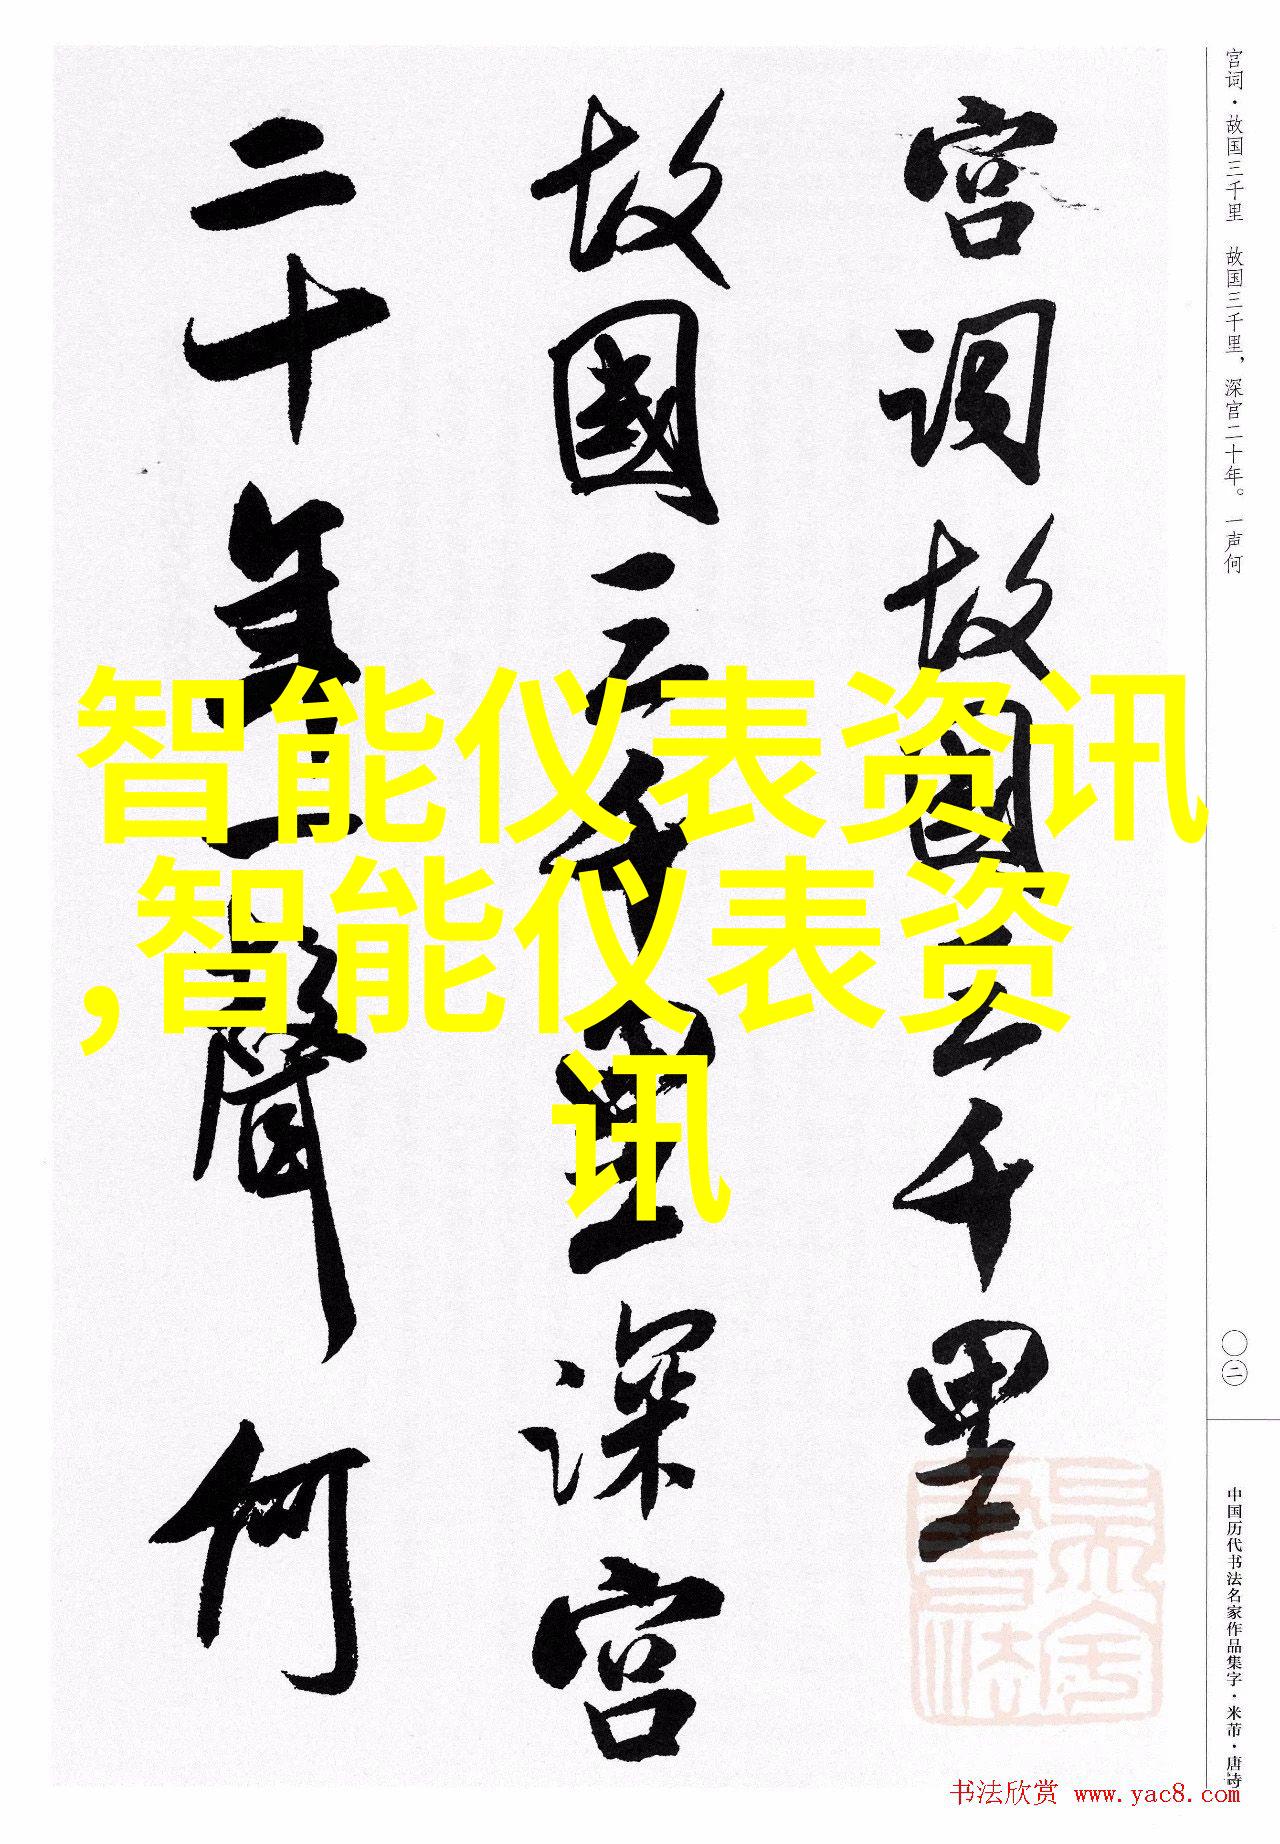 宫词·故国三千里 故国三千里，深宫二十年。一声何
宫词故国三千里
故國三千里深宫
二十年一聲何
智能仪表资讯
,智能仪表资
讯
〇二
中国历代书法名家作品集字·米芾·唐诗
书法欣赏 www.yac8.com